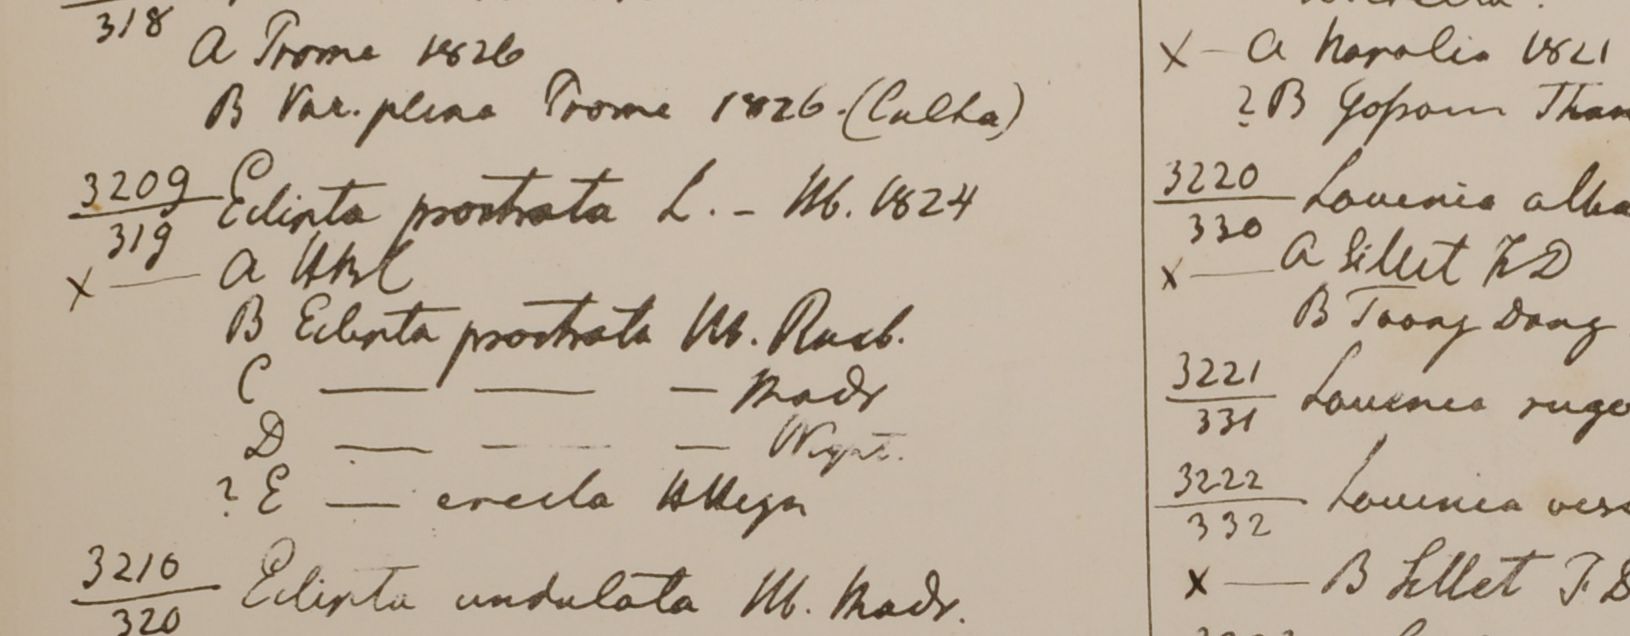 318
A Prome 1826
B Var. plena Prome 1826. (Culta)
3209
319
Eclipta prostrata L. - Hb. 1824
x — A HBC
B Eclipta prostrata Hb. Ruxb.
C — — — Madr
D — — — Wight.
? E — erecta HHeyn
3210
320
Eclipta undulata Hb. Madr.
x — A Napalia 1821
? B Gossain Than
3220
330
Lavenia alba
x — A Sillet FD
B Toong Dong
3221
331
Lavenia rugo
3222
332
Lavenia
x — B Sillet F.D